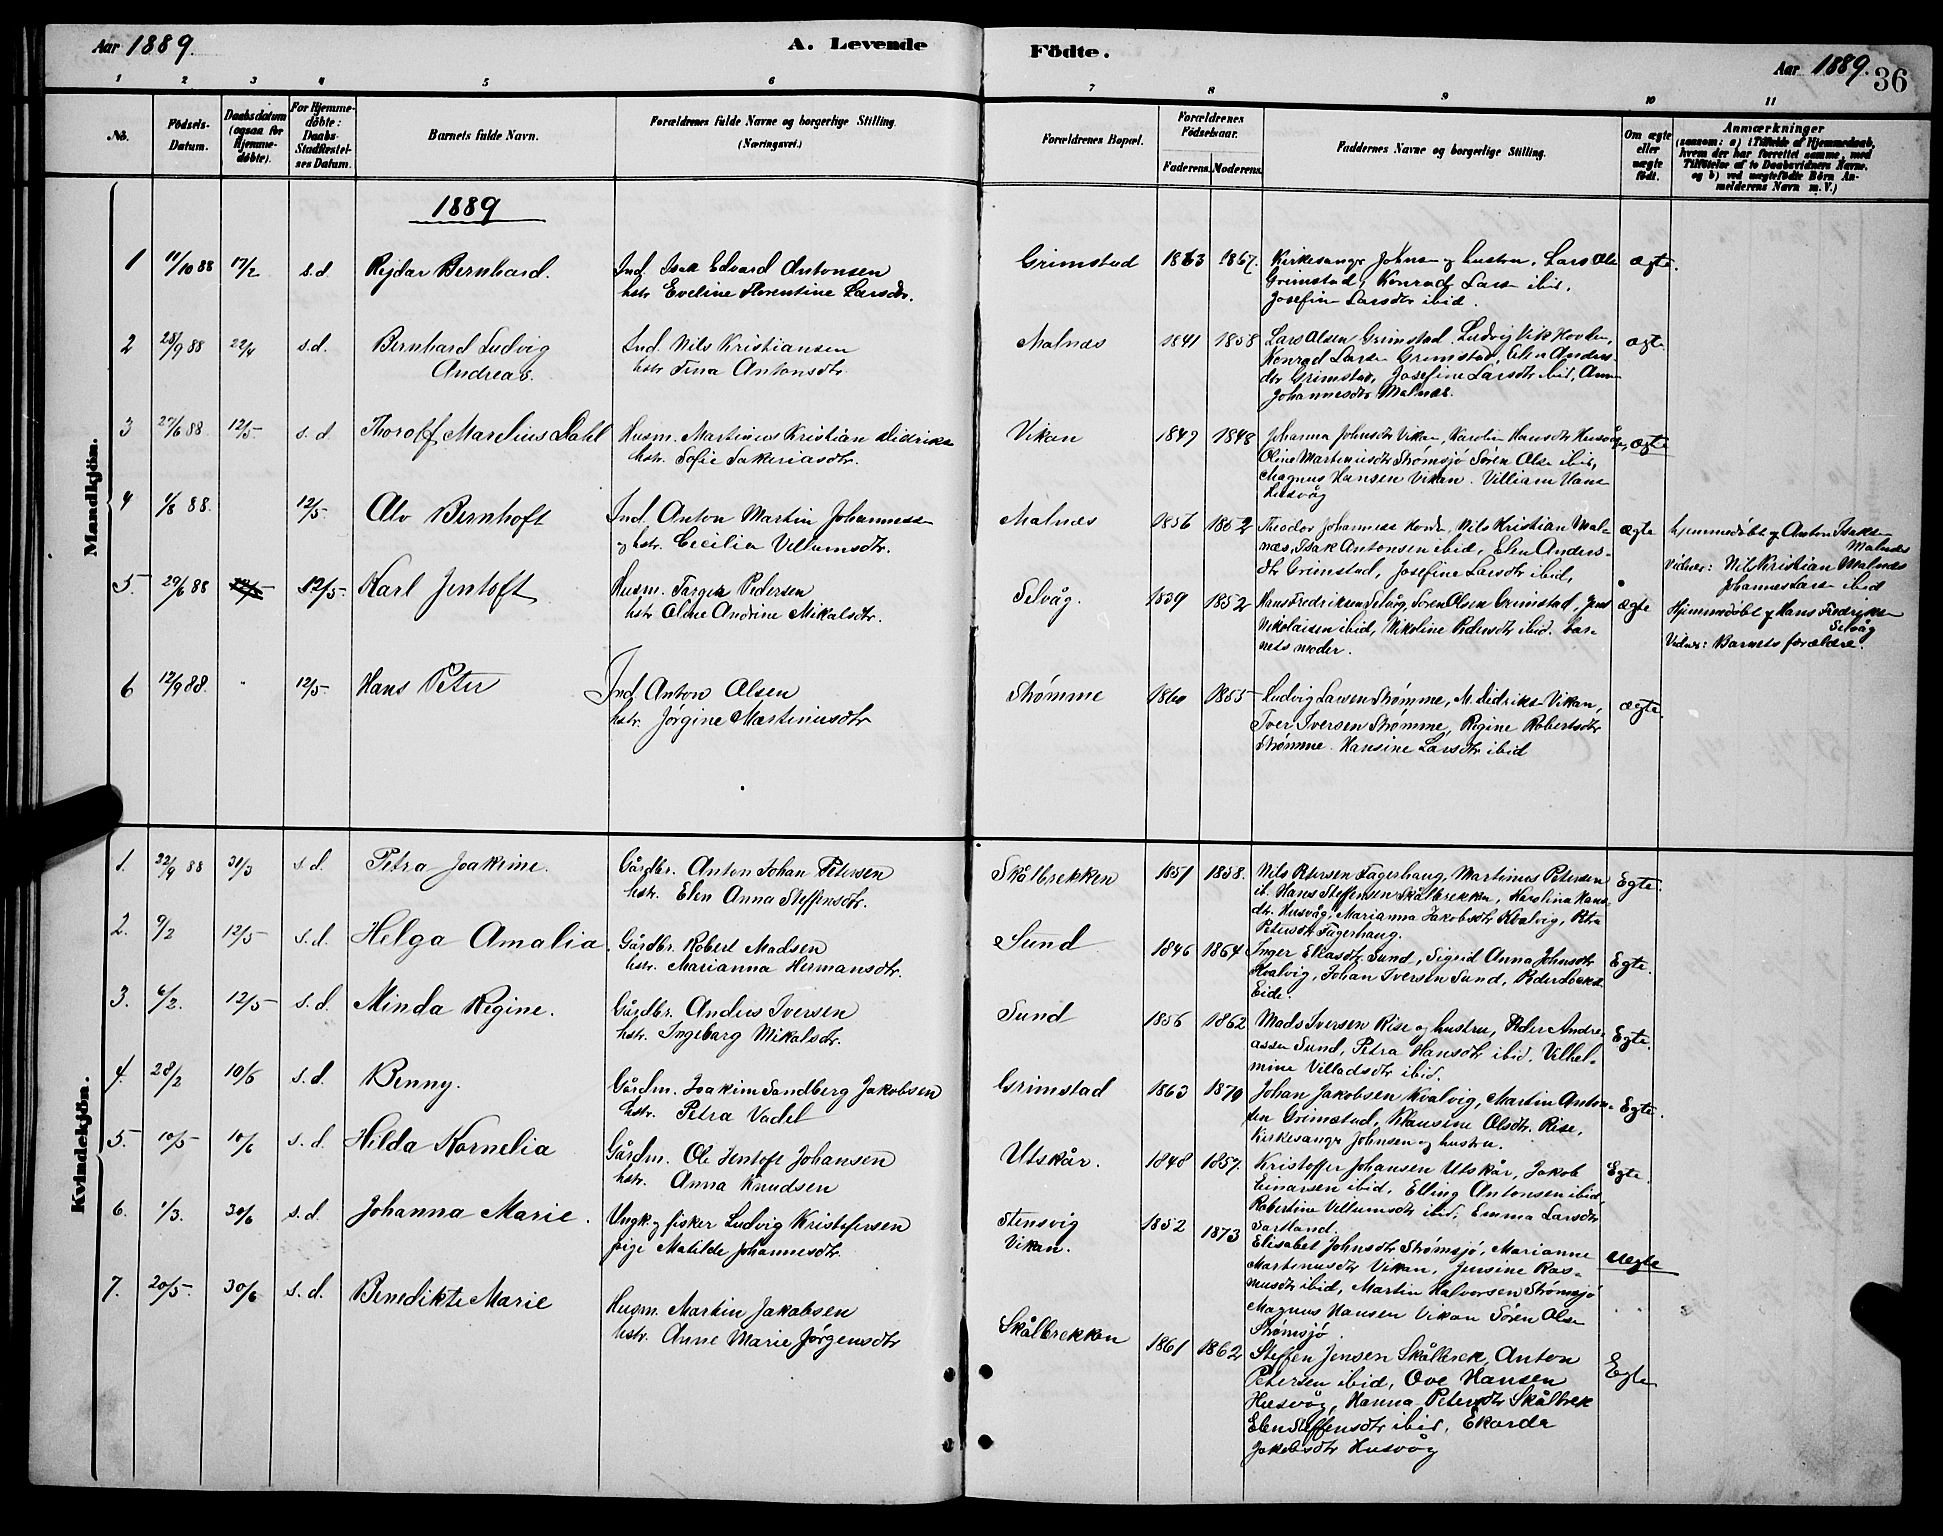 Aar 1889. A. Levende Födte. Aar 1889. 36
1 2 3 4 5 6 7 8 9 10 11
No.
Födsels-
Datum.
Daabsdatum
(ogsaa for
Hjemme-
döbte).
For Hjemme-
döbte:
Daabs-
Stadfæstel-
ses Datum.
Barnets fulde Navn.
Forældrenes fulde Navne og borgerlige Stilling.
(Næringsvei.)
Forældrenes Bopæl.
Forældrenes
Födselsaar.
Faderens. Moderens.
Faddernes Navne og borgerlige Stilling.
Om ægte
eller
uægte
födt.
Anmærkninger
(saasom: a) i Tilfælde af Hjemmedaab,
hvem der har forrettet samme, med
Tilföielse af to Daabsvidners Navne.
og b) ved uægtefödte Börn An-
melderens Navn m. V.)
1889
Mandkjön.
1 11/10 88 17/2 s.d. Rejdar Bernhard. Ind. Isak Edvard Antonsen
hstr. Eveline Florentine Larsdr.
Grimstad 1863 1867. Kirkesanger Johns og hustru. Lars Ols ægte.
Grimstad, Konrad Lars ibid,
Josefin Larsdtr ibid.
2 28/9 88 22/4 s.d. Bernhard Ludvig
Andreas.
Ind. Nils Kristiansen
hstr. Tina Antonsdtr.
Malnæs 1841 1858 Lars Olsen Grimstad. Ludvig Vik Hovden, ægte
Konrad Larsen Grimstad, Elen Anders-
dtr Grimstad, Josefine Larsdtr ibid, Anna
Johannesdtr Malnæs.
3 29/6 88 12/5 s.d. Thorolf Marelius Dahl Husm. Martinus Kristian Didriks
hstr. Sofie Sakariasdtr.
Vikan 1849 1848 Johanna Johnsdtr Vikan, Karolin Hansdtr Husvåg, ægte
Oline Martinusdtr Strømsjø Søren Olse ibid,
Magnus Hansen Vikan. Villiam Hans
Husvåg
4 1/8 88 12/5. Alv Bernhoft Ind. Anton Martin Johanness
og hstr. Cecilia Villumsdtr.
Malnæs 1856 1852 Theodor Johanness Hovd, Nils Kristian Mal- ægte
næs, Isak Antonsen ibid, Elen Anders-
dtr Grimstad, Josefine Larsdtr ibid,
Hjemmedøbt af Anton Isaks
Malnæs
Vidner: Nils Kristian Malnæs
Johannes Lars ibid
5. 29/6 88 12/5. Karl Jentoft Husm. Torger Pedersen
hstr. Oline Andrine Mikalsdtr.
Selvåg. 1839 1852 Hans Fredriksen Selvåg, Søren Olsen Grimstad, Jens ægte
Nikolaisen ibid, Nikoline Pedersdtr ibid. Bar-
nets moder.
Hjemmedøbt af Hans Fredriks
Selvåg
Vidner: Barnets forældre.
6 12/9 88. 12/5 Hans Peter Ind. Anton Olsen
hstr. Jørgine Martinusdtr
Strømme 1860 1855 Ludvig Larsen Strømme, M. Didriks Vikan, ægte.
Iver Iversen Strømme, Regine Robertsdtr
Strømme. Hansine Larsdtr ibid
Kvindekjön.
1. 22/9 88 31/3 s.d. Petra Joakime. Gårdbr. Anton Johan Petersen
hstr. Elen Anna Steffensdtr.
Skålbrekken 1851 1858. Nils Petersen Fagerhaug, Martinus Petersen Egte.
ib. Hans Steffensen Skålbrekken, Karolina Hans-
dtr. Husvåg, Marianna Jakobsdtr Kvalvig, Petra
Petersdtr Fagerhaug.
2. 9/2 12/5 s.d. Helga Amalia. Gårdbr. Robert Madsen
hstr. Marianna Hermansdtr.
Sund 1846 1864 Inger Eliasdtr Sund, Sigrid Anna Johnsdtr Egte.
Kvalvig, Johan Iversen Sund, Peder
Eide.
3. 6/2. 12/5 s.d. Minda Regine. Gårdbr. Andreas Iversen
hstr. Ingeborg Mikalsdtr.
Sund 1856 1862 Mads Iversen Rise og hustru, Peder Andre- Egte.
assen Sund, Petra Hansdtr ibid. Vilhel-
mine Villadsdtr ibid.
4. 28/2 10/6 s.d. Benny. Gårdm. Joakim Sandberg Jakobsen
hstr. Petra Vadel
Grimstad 1863 1870 Johan Jakobsen Kvalvig, Martin Anton- Egte.
sen Grimstad, Hansine Olsdtr. Rise,
Kirkesanger Johnsen og hustru.
5. 10/5 10/6 s.d. Hilda Kornelia Gårdm. Ole Jentoft Johansen
hstr. Anna Knudsen
Utskår. 1848 1857. Kristoffer Johansen Utskår, Jakob Egte.
Einarsen ibid, Elling Antonsen ibid
Robertine Villumsdtr ibid. Emma Larsdtr
Sortland.
6. 1/3. 30/6 s.d. Johanna Marie. Ungk. og fisker Ludvig Kristofersen
pige Matilde Johannesdtr.
Stensvig
Vikan.
1852 1873 Elisabet Johnsdtr Strømsjø, Marianne Uegte
Martinusdtr Vikan, Jensine Ras-
musdtr ibid, Martin Halvorsen Strømsjø
Magnus Hansen Vikan Søren Olse
Strømsjø
7. 20/5 30/6 s.d. Benedikte Marie Husm. Martin Jakobsen
hstr. Anne Marie Jørgensdtr
Skålbrekken 1861 1862 Steffen Jensen Skålbrek, Anton Egte
Petersen ibid, Ove Hansen
Husvåg, Hanna Petersdtr Skålbrek
Elen Steffensdtr ibid, Ekarda
Jakobsdtr Husvåg